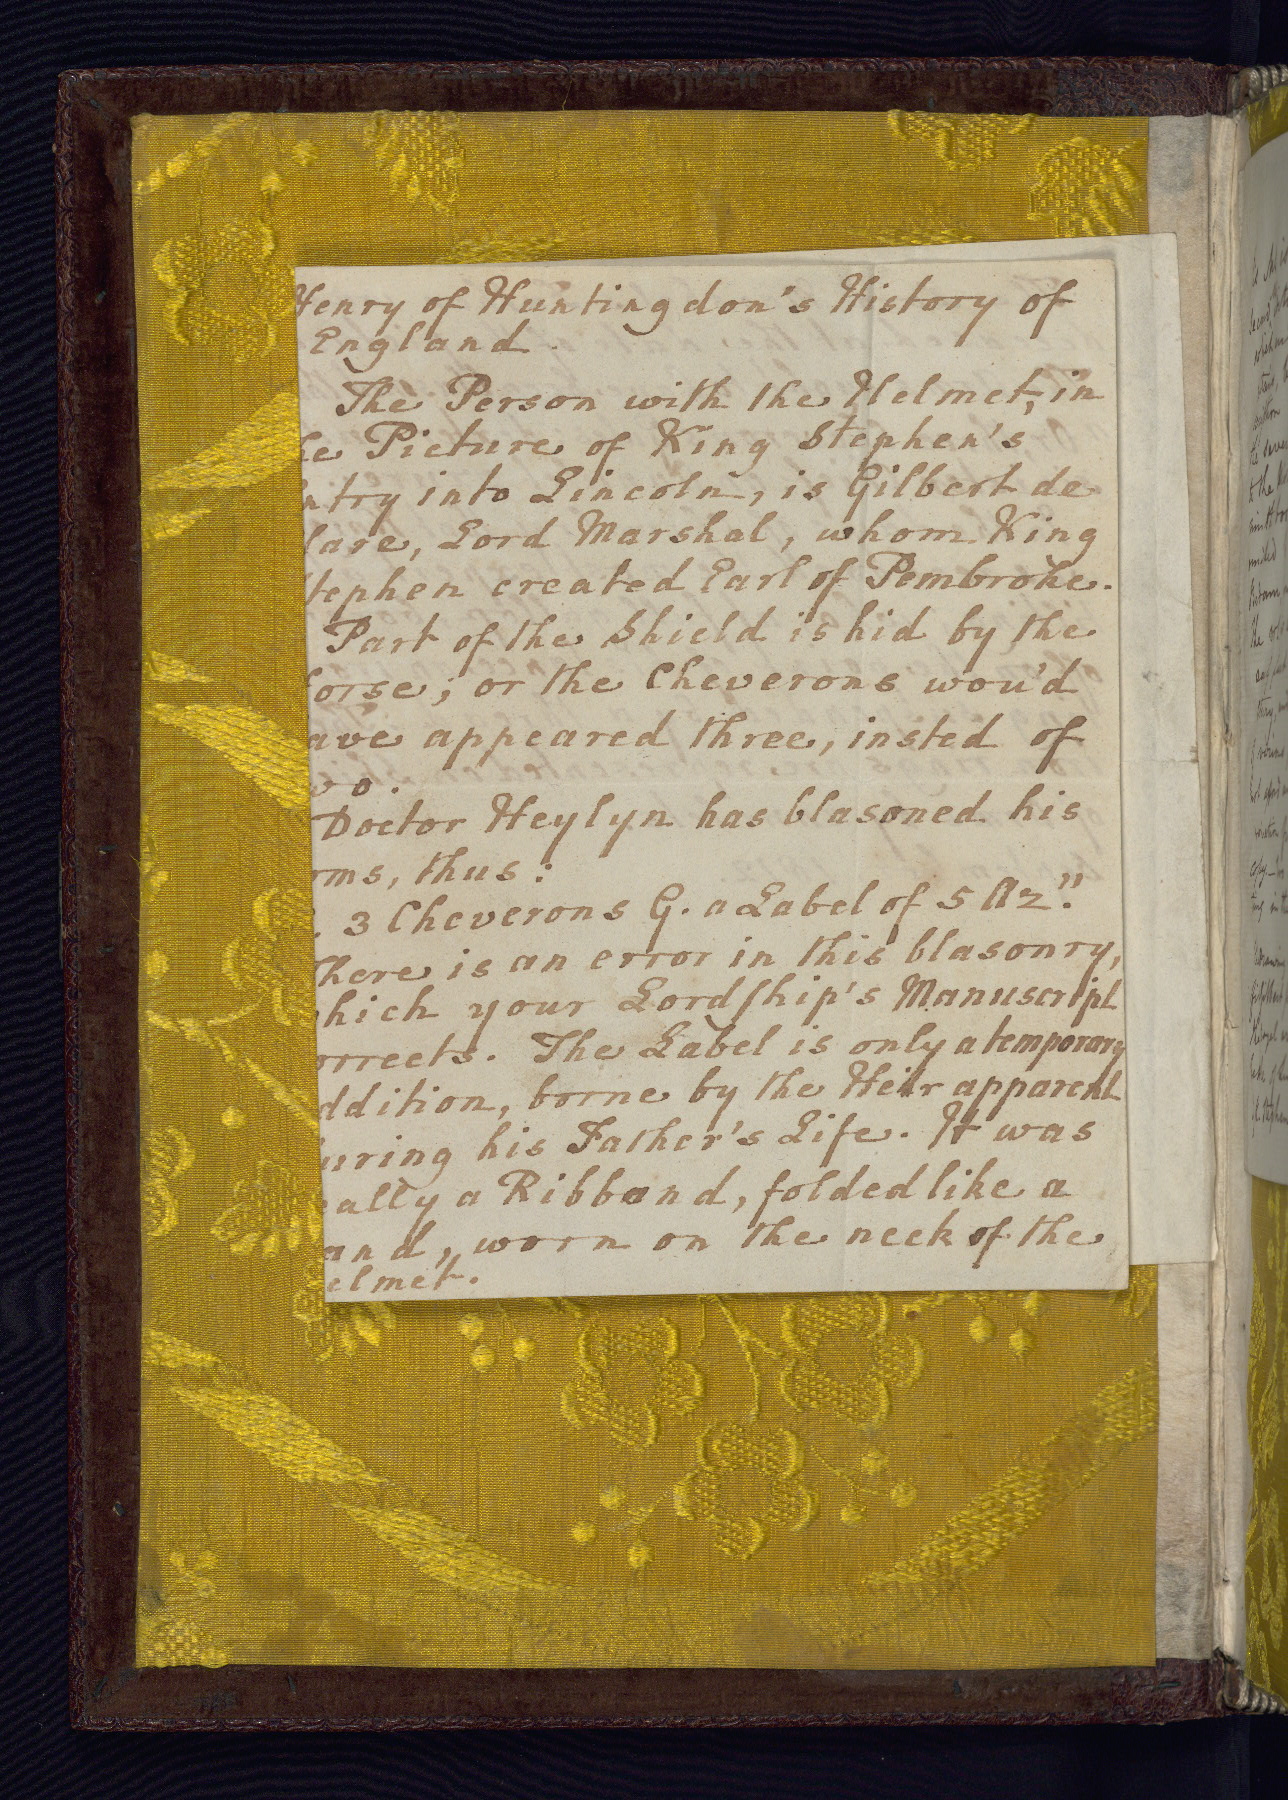 Henry of Huntingdon's History of
England.
The Person with the Helmet, in
he Picture of King Stephen's
ntry into Lincoln, is Gilbert de
lare, Lord Marshal, whom King
tephen created Earl of Pembroke.
Part of the Shield is hid by the
orse; or the Cheverons wou'd
ave appeared three, insted of
wo.
Doctor Heylyn has blasoned his
rms, thus:
. 3 Cheverons G. a Label of 5 Az."
There is an error in this blasonry,
hich your Lordship's Manuscript
orrects. The Label is only a temporary
ddition, borne by the Heir apparent
uring his Father's Life. It was
eally a Ribband, folded like a
and, worn on the neck of the
elmet.